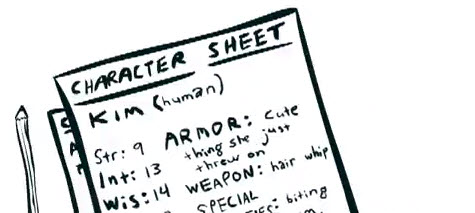 CHARACTER SHEET
KIM (human)
Str: 9
Int: 13
Wis: 14
ARMOR: Cute
thing she just
threw on
WEAPON: hair whip
SPECIAL
biting